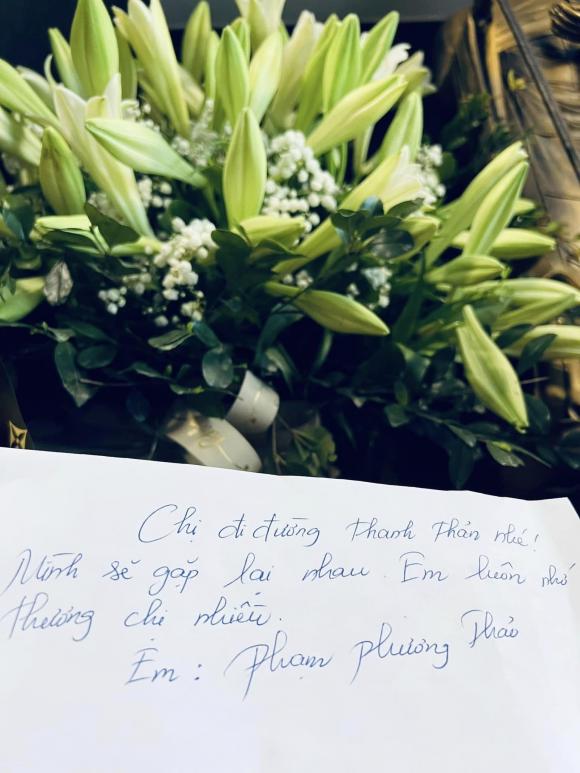 Chị đi đường thanh thản nhé!
Mình sẽ gặp lại nhau. Em luôn nhớ
thương chị nhiều.
Em : Phạm Phương Thảo